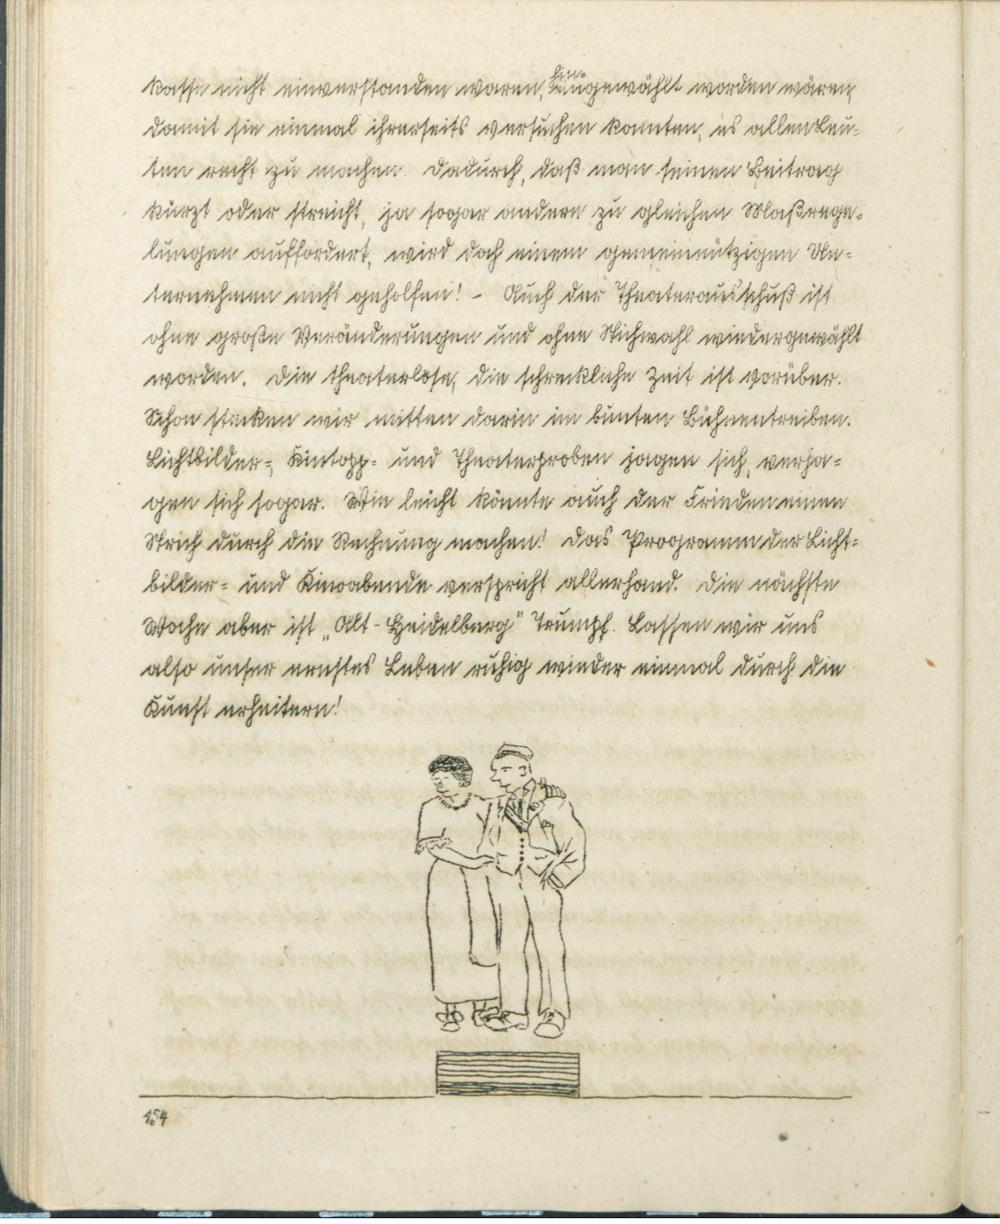 Kasse nicht einverstanden waren, hineingewählt worden wären,
damit sie einmal ihrerseits versuchen konnten, es allen Leu-
ten recht zu machen. Dadurch, daß man seinen Beitrag
kürzt oder streicht, ja sogar andere zu gleichen Maßrege-
lungen auffordert, wird doch einem gemeinnützigen Un-
ternehmen nicht geholfen! - Auch der Theaterausschuß ist
ohne große Veränderungen und ohne Stichwahl wiedergewählt
worden. Die theaterlose, die schreckliche Zeit ist vorüber.
Schon stecken wir mitten darin im bunten Bühnentreiben.
Lichtbilder-, Kintopp- und Theaterproben jagen sich, verja-
gen sich sogar. Wie leicht könnte auch der Frieden einen
Strich durch die Rechnung machen! Das Programm der Licht-
bilder- und Kinoabende verspricht allerhand. Die nächste
Woche aber ist „Alt-Heidelberg" Trumpf. Lassen wir uns
also unser ernstes Leben ruhig wieder einmal durch die
Kunst erheitern!
154